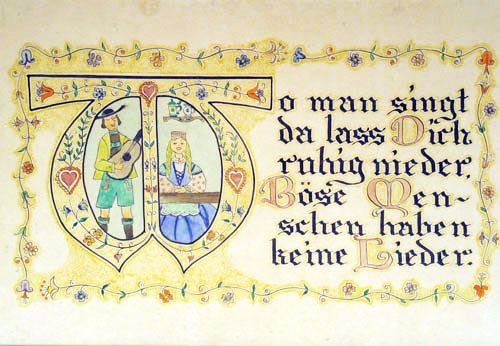 Wo man singt
da lass Dich
ruhig nieder,
Böse Men-
schen haben
keine Lieder.